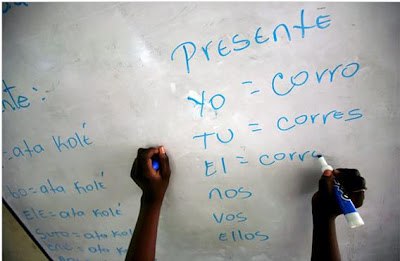 PRESENTE
YO = CORRO
TU = CORRES
El = CORR
nos
vos
ellos
nte:
=ata kolé
bo=ata kolé
ELE=ata kolé
SUTO=ata kolé
ENE=ata kolé